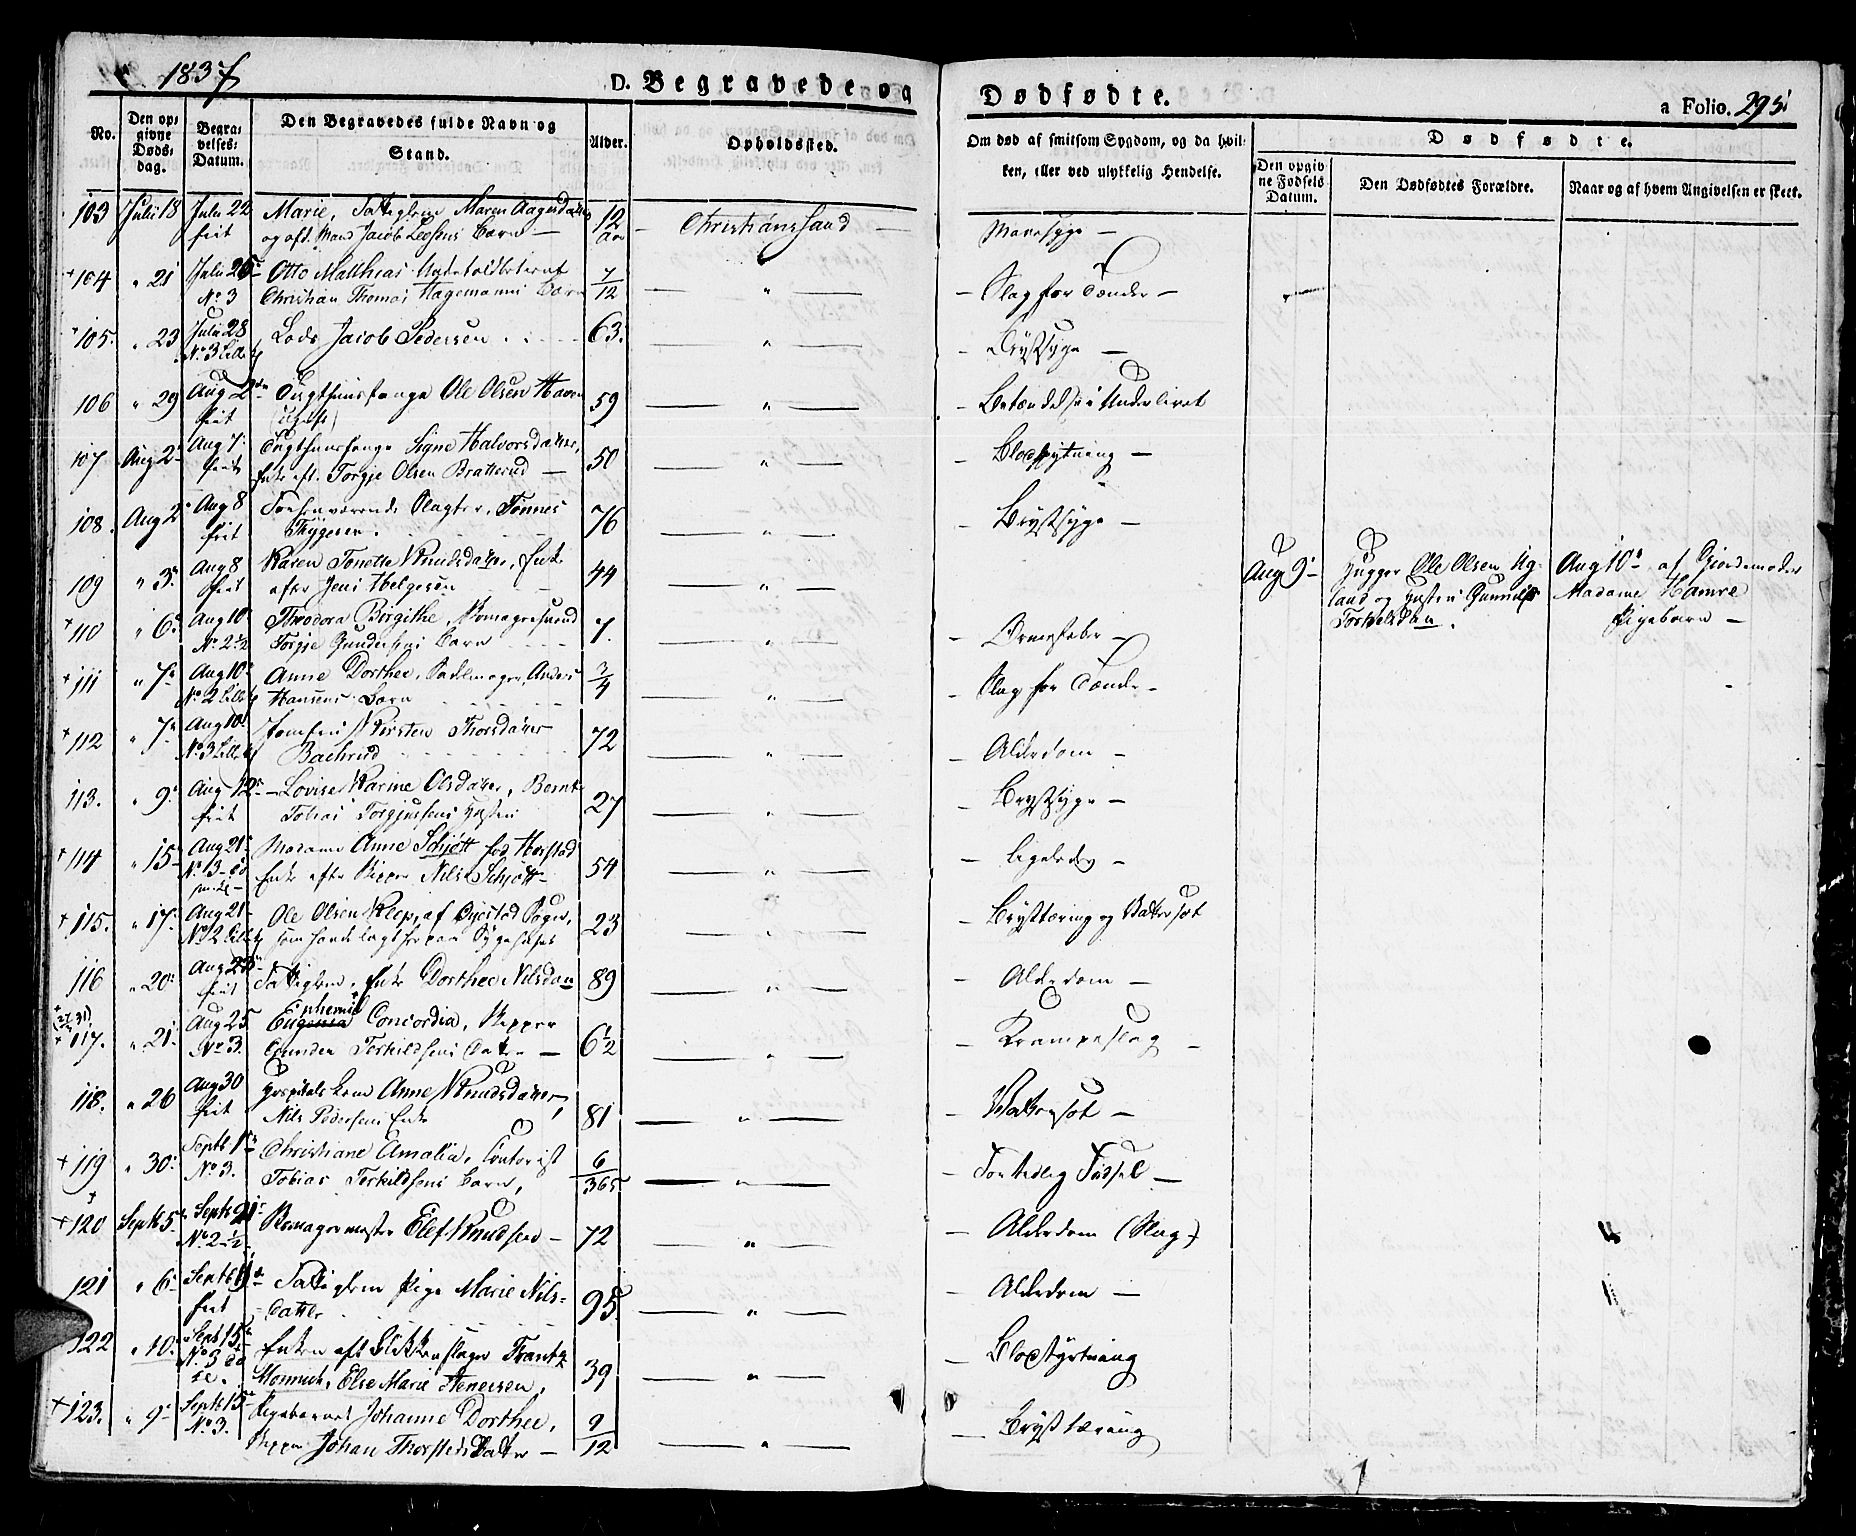 1837
D. Begravede og Dødfødte.
a Folio. 295
No.
Den opgivne Dødsdag.
Begravelses-Datum.
Den Begravedes fulde Navn og Stand.
Alder.
Opholdssted.
Om død af smitsom Sygdom, og da hvilken, eller ved ulykkelig Hendelse.
Dødfødte.
Den opgivne Fødsels Datum.
Den Dødfødtes Forældre.
Naar og af hvem Angivelsen er skeet.
103 Julii 18 Julii 22 Marie, Maren Aagesdatter 12 Christianssand
frit og afd. Mand Jacob Barn
104 " 21 Julii 25 Otto Matthias 7/12 " Slag for Tænder
No 3 Christian Thomas Hagemanns Barn
105. " 23 Julii 28 Lods Jacob Pedersen 63. " Brystsyge
No 3
106 " 29 Aug 2 Tugthuusfange Ole Olsen 59 " Betændelse i Underlivet
frit
107 Aug 2 Aug 7 Tugthuusfange Signe Halvorsdatter, 50 " Blodspytning
frit Enke eft. Torgje Olsen Bratterud
108. Aug 2 Aug 8 Forhenværende Slagter, Tønnes 76 " Brystsyge
frit Thygesen.
109 " 3 Aug 8 Karen Tonette Knudsdatter, Enke 44 "
frit efter Jens Helgesen
Aug 9 Ole Olsen Ug-
land og Hustru Gunnild
Torkelsdtr.
Aug 10 af Gjordemoder
Madame Hamre
Pigebarn
110 " 6 Aug 10 Theodora Birgithe, Skomagersvend 7. " Ormefeber
No 2½ Torgje Gundersens Barn
111 " 7 Aug 10 Anne Dorthea, Sadelmager Anders 3/4 " Slag for Tænder
No 2 Hansens Barn
112 " 7 Aug 10 Jomfru Kirsten Thorsdatter 72 " Alderdom
No 3
113. " 9 Aug 12 Lovise Karine Olsdatter, Bernt 27 " Brystsyge
frit Tobias Torgjussens Hustru
114 " 15 Aug 21 Madame Anne Schjøtt fød Harstad 54 "
No 13 Enke efter Skipper Nils Schjøtt
115. " 17 Aug 21 Ole Olsen Klep, af Øiestad Sogn, 23 " Brysttæring og Vattersot
No 12
116 " 20 Aug 25 Enke Dorthee Nilsdtr 89 " Alderdom
frit
117. " 21 Aug 25 Euphemia Concordia, Skipper 6½ " Krampeslag
No 3. Gunder Terkildsens Datter
118. " 26 Aug 30 Hospitalslem Anne Knudsdatter, 81 " Vattersot
frit Nils Pedersens Enke
119 " 30 Septb 1 Christiane Amalia, Contorist 6/365 " For tidlig Fødsel
No 3. Tobias Terkildsens Barn,
120 Septb 5 Septb Skomagermester Elef Knudsen 72 " Alderdom (Slag)
No 2½
121 " 6 Septb Fattiglem Pige Marie Nils- 95. " Alderdom
frit datter
122 " 10 Sept 15 Enken eft Blikkenslager Frantz 39 " Blodstyrtning
No 3 Monnich, Else Marie Stenersen,
123. " 9 Septb 15 Pigebarnet Johanne Dorthee, 9/12 " Brysttæring
No 3. Skipper Johan Thorsteds Datter